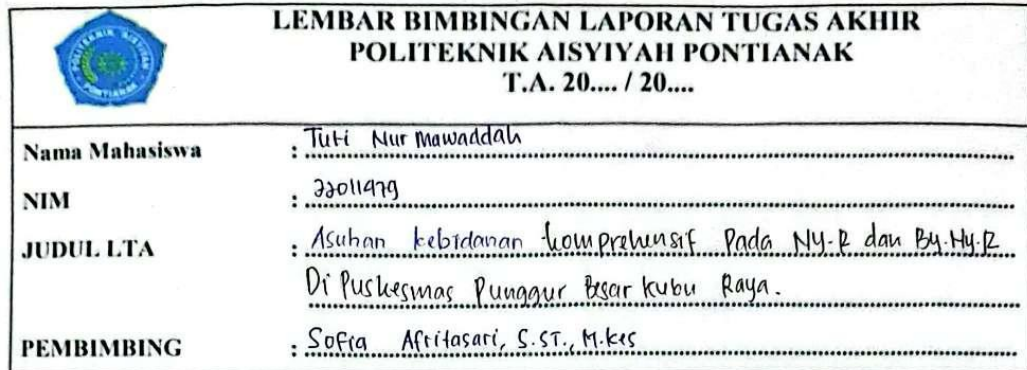 POLITEKNIK AISYIYAH
PONTIANAK
LEMBAR BIMBINGAN LAPORAN TUGAS AKHIR
POLITEKNIK AISYIYAH PONTIANAK
T.A. 20.... / 20....
Nama Mahasiswa : Tuti Nur Mawaddah
NIM : 22011479
JUDUL LTA : Asuhan kebidanan komprehensif Pada NY.R dan By.Ny.R
Di Puskesmas Punggur Besar kubu Raya.
PEMBIMBING : Sofia Afritasari, S.ST., M.kes